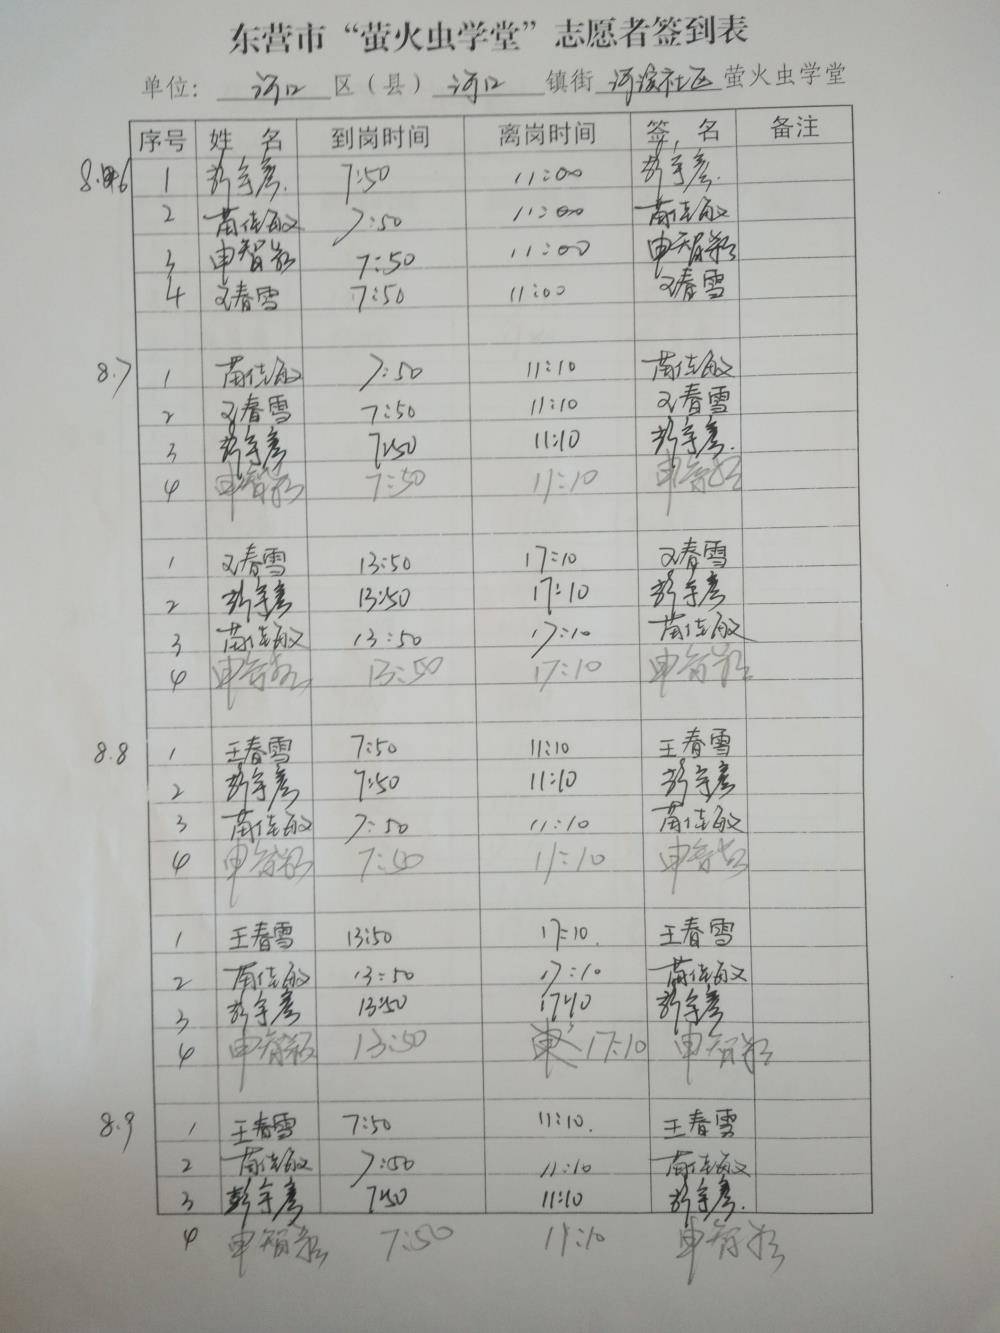 东营市“萤火虫学堂”志愿者签到表
单位：河口区（县）河口镇街河滨社区萤火虫学堂
序号 姓 名 到岗时间 离岗时间 签 名 备注
8.6 1 彭宇彦. 7:50 11:00 彭宇彦.
2 苗佳敏 7:50 11:00 苗佳敏
3 申智彩 7:50 11:00 申智彩
4 王春雪 7:50 11:00 王春雪
8.7 1 苗佳敏 7:50 11:10 苗佳敏
2 王春雪 7:50 11:10 王春雪
3 彭宇彦 7:50 11:10 彭宇彦.
4 申智彩 7:50 11:10 申智彩
1 王春雪 13:50 17:10 王春雪
2 彭宇彦 13:50 17:10 彭宇彦
3 苗佳敏 13:50 17:10 苗佳敏
4 申智彩 13:50 17:10 申智彩
8.8 1 王春雪 7:50 11:10 王春雪
2 彭宇彦 7:50 11:10 彭宇彦
3 苗佳敏 7:50 11:10 苗佳敏
4 申智彩 7:50 11:10 申智彩
1 王春雪 13:50 17:10. 王春雪
2 苗佳敏 13:50 17:10 苗佳敏
3 彭宇彦 13:50 17:10 彭宇彦
4 申智彩 13:50 17:10 申智彩
8.9 1 王春雪 7:50 11:10. 王春雪
2 苗佳敏 7:50 11:10 苗佳敏
3 彭宇彦 7:50 11:10 彭宇彦.
4 申智彩 7:50 11:10 申智彩